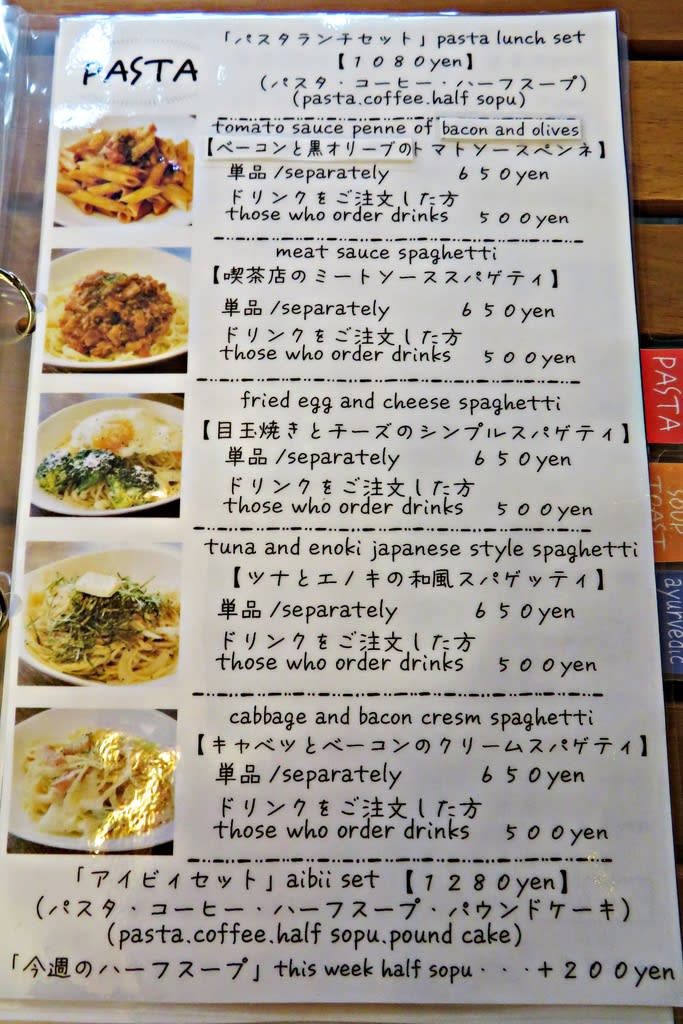 「パスタランチセット」pasta lunch set
PASTA
【１０８０yen】
(パスタ・コーヒー・ハーフスープ)
(pasta.coffee.half sopu)
tomato sauce penne of bacon and olives
【ベーコンと黒オリーブのトマトソースペンネ】
単品/separately ６５０yen
ドリンクをご注文した方
those who order drinks ５００yen
meat sauce spaghetti
【喫茶店のミートソーススパゲティ】
単品/separately ６５０yen
ドリンクをご注文した方
those who order drinks ５００yen
fried egg and cheese spaghetti
【目玉焼きとチーズのシンプルスパゲティ】
単品/separately ６５０yen
ドリンクをご注文した方
those who order drinks ５００yen
tuna and enoki japanese style spaghetti
【ツナとエノキの和風スパゲッティ】
単品/separately ６５０yen
ドリンクをご注文した方
those who order drinks ５００yen
cabbage and bacon cresm spaghetti
【キャベツとベーコンのクリームスパゲティ】
単品/separately ６５０yen
ドリンクをご注文した方
those who order drinks ５００yen
「アイビィセット」aibii set 【１２８０yen】
(パスタ・コーヒー・ハーフスープ・パウンドケーキ)
(pasta.coffee.half sopu.pound cake)
「今週のハーフスープ」this week half sopu・・・＋２００yen
PASTA
SOUP
TOAST
ayurvedic